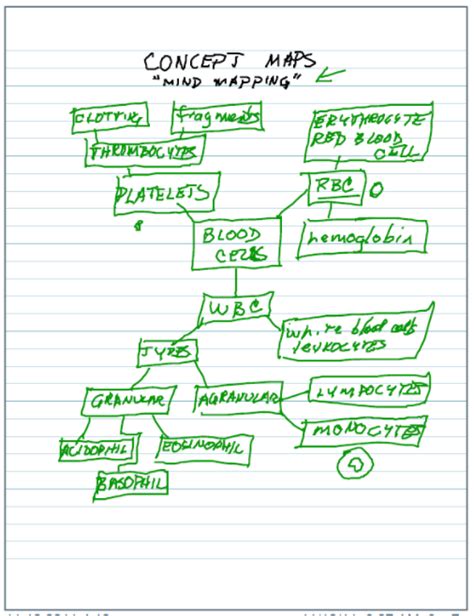 CONCEPT MAPS
"MIND MAPPING"
CLOTTING
fragments
THROMBOCYTES
PLATELETS
ERYTHROCYTE
RED BLOOD
CELL
RBC
hemoglobin
BLOOD
CELLS
WBC
white blood cells
LEUKOCYTES
TYPES
GRANULAR
AGRANULAR
LYMPOCYTES
MONOCYTES
ACIDOPHIL
EOSINOPHIL
BASOPHIL